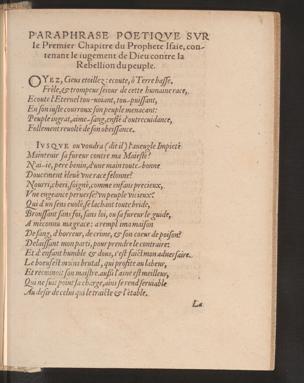 PARAPHRASE POËTIQVE SVR
le Premier Chapitre du Prophete Isaie, con-
tenant le iugement de Dieu contre la
Rebellion du peuple.
OYEZ, Cieus etoillez: ecoute, ô Terre basse,
Frêle, & trompeus seiour de cette humaine race,
Ecoute l'Eternel tou-uoiant, tou-puissant,
En son iuste courroux son peuple menaçant:
Peuple ingrat, aime-sang, enflé d'outrecuidance,
Follement reuolté de son obeissance.
IVSQVE ou voudra (dit il) l'aueugle Impieté
Maintenir sa fureur contre ma Maiesté?
N'ai-ie, pere benin, d'une main toute-bonne
Doucement éleué vne race felonne?
Nourri, cheri, soigné, comme enfans precieux,
Vne engeance peruerse? vn peuple vicieux?
Qui d'un sens euolé, se lachant toute bride,
Broussant sans foi, sans loi, ou sa fureur le guide,
A miconnu ma grace: a rempli ma maison
De sang, d'horreur, de crime, & son cœur de poison?
Delaissant mon parti, pour prendre le contraire:
Et d'enfant humble & dous, s'est faict mon aduersaire.
Le bœuf est moins brutal, qui profite au labeur,
Et reconnoit son maistre: aussi l'asne est meilleur,
Qui ne fuit point sa charge, ains se rend seruiable
Au desir de celui qui le traicte & l'étable.
La